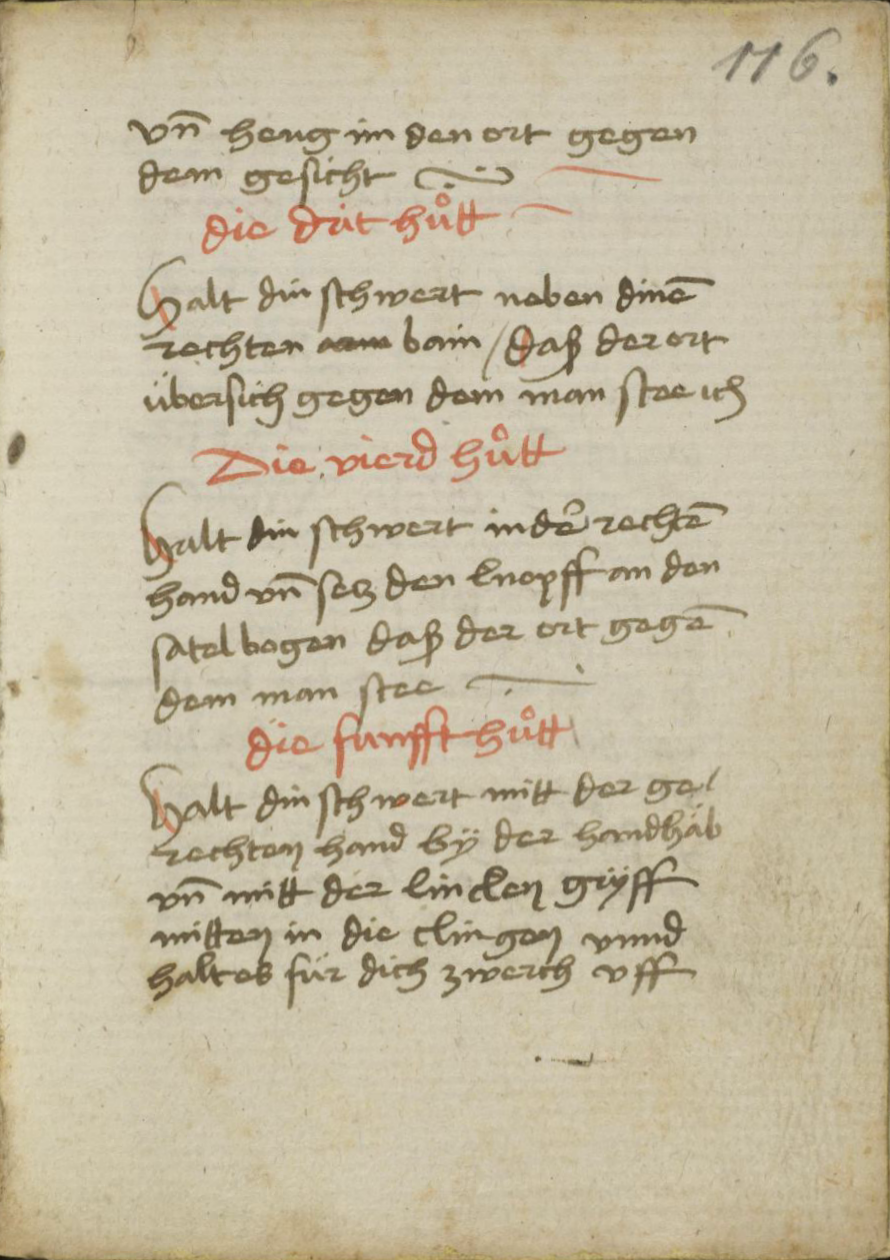 116.
vn̄ heng im den ort gegen
dem gesicht
die drit hůtt
Halt din schwert neben dinē
rechten bain / daß der ort
übersich gegen dem man stee ich
Die vierd hůtt
Halt din schwert in der rechtē
hand vn̄ setz den knopff an den
satelbogen daß der ort gegē
dem man stee
die funfft hůtt
Halt din schwert mitt der ge/
rechten hand by̋ der handhäb
vn̄ mitt der lincken gry̋ff
mitten in die clingen vnnd
halt es für dich zwerch vff